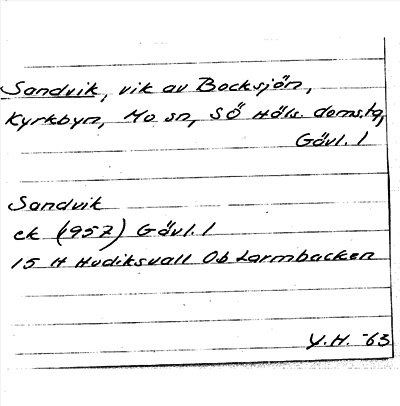 Sandvik, vik av Bocksjön,
Kyrkbyn, Mo sn, SÖ Häls. doms.hg,
Gävl. l
Sandvik
ek (1957) Gävl. l
15 H Hudiksvall Ob Larmbacken
Y.H. -63